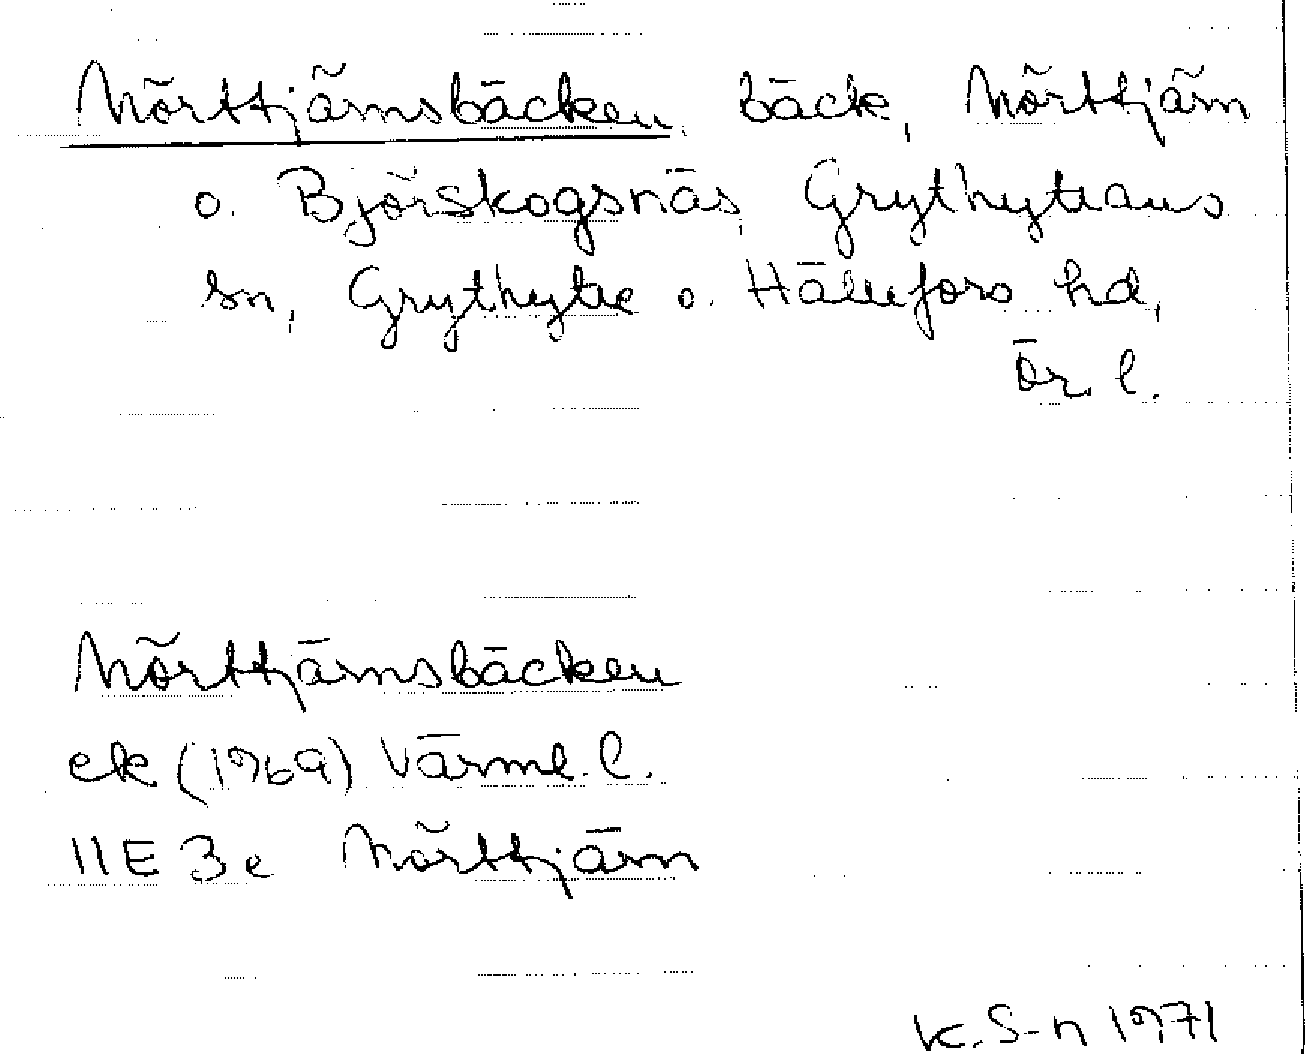 Mörttjärnsbäcken, bäck, Mörttjärn
o. Björskogsnäs, Grythyttans
sn, Grythytte o. Hällefors hd,
Ör. l.
Mörttjärnsbäcken
ek (1969) Värml. l.
11E 3e Mörttjärn
K. S-n 1971